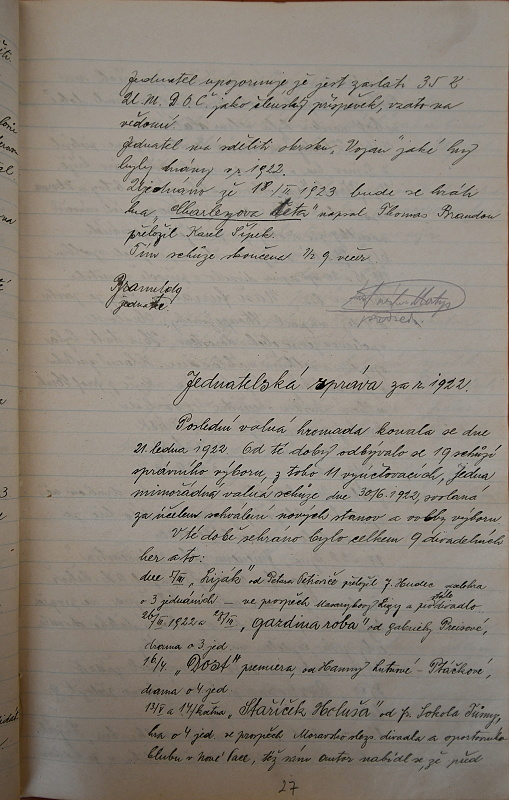 Jednatel upozorňuje že jest zaslati 35 K
Ú. M. D. O. Č. jako členský příspěvek, vzato na
vědomí.
Jednatel má sděliti okrsku "Vojan" jaké hry
byly hrány v r. 1922.
Ujednáno že 18/II 1923 bude se hráti
hra "Charleyova teta" napsal Thomas Brandon
přeložil Karel Šípek.
Tím schůze skončena ½ 9. večer.
jednatel
předsed.
Jednatelská zpráva za r. 1922.
Poslední valná hromada konala se dne
21. ledna 1922. Od té doby odbývalo se 19 schůzí
správního výboru, z toho 11 vyúčtovacích, jedna
mimořádná valná schůze dne 30/6. 1922, svolaná
za účelem schválení nových stanov a volby výboru.
V té době sehráno bylo celkem 9 divadelních
her a to:
dne "Liják" od Petra Petroviče přeložil J. Hudec veselohra
o 3 jednáních – ve prospěch Masarykovy Ligy a divadlo.
26/II 1922 a "Gazdina roba" od Gabriely Preisové,
drama o 3 jed.
16/4. "Dost" premiera, od Hanny Ptáčkové,
drama o 4 jed.
13/8 a 14/8 "Staříček Holuša" od Fr. Sokola Tůmy,
hra o 4 jed. ve prospěch Moravsko slezs. divadla a
klubu v Nové Vsi, též sám autor nabídl se, že před
27